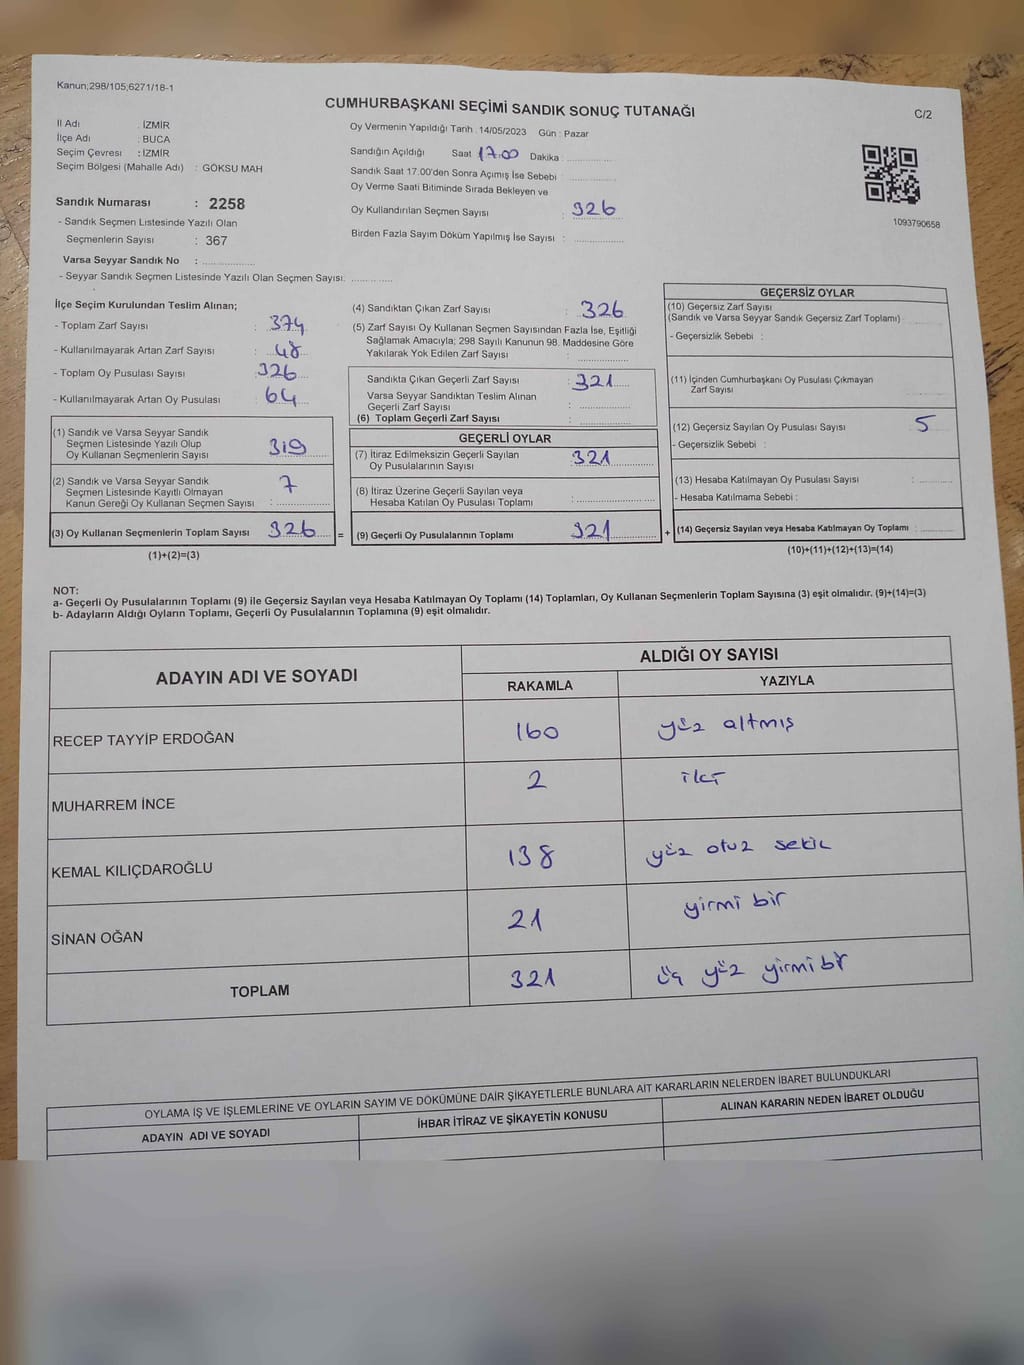 Kanun;298/105;6271/18-1
CUMHURBAŞKANI SEÇİMİ SANDIK SONUÇ TUTANAĞI
C/2
İl Adı : İZMİR
İlçe Adı : BUCA
Seçim Çevresi : İZMİR
Seçim Bölgesi (Mahalle Adı) : GÖKSU MAH
Sandık Numarası : 2258
- Sandık Seçmen Listesinde Yazılı Olan
Seçmenlerin Sayısı : 367
Varsa Seyyar Sandık No :
- Seyyar Sandık Seçmen Listesinde Yazılı Olan Seçmen Sayısı:
Oy Vermenin Yapıldığı Tarih : 14/05/2023 Gün : Pazar
Sandığın Açıldığı Saat 17.00 Dakika :
Sandık Saat 17.00'den Sonra Açımış İse Sebebi :
Oy Verme Saati Bitiminde Sırada Bekleyen ve
Oy Kullandırılan Seçmen Sayısı : 326
Birden Fazla Sayım Döküm Yapılmış İse Sayısı :
1093790658
İlçe Seçim Kurulundan Teslim Alınan;
- Toplam Zarf Sayısı : 374
- Kullanılmayarak Artan Zarf Sayısı : 48
- Toplam Oy Pusulası Sayısı : 326
- Kullanılmayarak Artan Oy Pusulası : 64
(1) Sandık ve Varsa Seyyar Sandık
Seçmen Listesinde Yazılı Olup
Oy Kullanan Seçmenlerin Sayısı : 319
(2) Sandık ve Varsa Seyyar Sandık
Seçmen Listesinde Kayıtlı Olmayan
Kanun Gereği Oy Kullanan Seçmen Sayısı : 7
(3) Oy Kullanan Seçmenlerin Toplam Sayısı 326 =
(1)+(2)=(3)
(4) Sandıktan Çıkan Zarf Sayısı : 326
(5) Zarf Sayısı Oy Kullanan Seçmen Sayısından Fazla İse, Eşitliği
Sağlamak Amacıyla; 298 Sayılı Kanunun 98. Maddesine Göre
Yakılarak Yok Edilen Zarf Sayısı :
Sandıkta Çıkan Geçerli Zarf Sayısı : 321
Varsa Seyyar Sandıktan Teslim Alınan
Geçerli Zarf Sayısı :
(6) Toplam Geçerli Zarf Sayısı :
GEÇERLİ OYLAR
(7) İtiraz Edilmeksizin Geçerli Sayılan
Oy Pusulalarının Sayısı : 321
(8) İtiraz Üzerine Geçerli Sayılan veya
Hesaba Katılan Oy Pusulası Toplamı :
(9) Geçerli Oy Pusulalarının Toplamı 321 +
GEÇERSİZ OYLAR
(10) Geçersiz Zarf Sayısı
(Sandık ve Varsa Seyyar Sandık Geçersiz Zarf Toplamı)
- Geçersizlik Sebebi :
(11) İçinden Cumhurbaşkanı Oy Pusulası Çıkmayan
Zarf Sayısı
(12) Geçersiz Sayılan Oy Pusulası Sayısı : 5
- Geçersizlik Sebebi :
(13) Hesaba Katılmayan Oy Pusulası Sayısı :
- Hesaba Katılmama Sebebi :
(14) Geçersiz Sayılan veya Hesaba Katılmayan Oy Toplamı :
(10)+(11)+(12)+(13)=(14)
NOT:
a- Geçerli Oy Pusulalarının Toplamı (9) ile Geçersiz Sayılan veya Hesaba Katılmayan Oy Toplamı (14) Toplamları, Oy Kullanan Seçmenlerin Toplam Sayısına (3) eşit olmalıdır. (9)+(14)=(3)
b- Adayların Aldığı Oyların Toplamı, Geçerli Oy Pusulalarının Toplamına (9) eşit olmalıdır.
ADAYIN ADI VE SOYADI
ALDIĞI OY SAYISI
RAKAMLA YAZIYLA
RECEP TAYYİP ERDOĞAN 160 yüz altmış
MUHARREM İNCE 2 iki
KEMAL KILIÇDAROĞLU 138 yüz otuz sekiz
SİNAN OĞAN 21 yirmi bir
TOPLAM 321 üç yüz yirmi bir
OYLAMA İŞ VE İŞLEMLERİNE VE OYLARIN SAYIM VE DÖKÜMÜNE DAİR ŞİKAYETLERLE BUNLARA AİT KARARLARIN NELERDEN İBARET BULUNDUKLARI
ADAYIN ADI VE SOYADI İHBAR İTİRAZ VE ŞİKAYETİN KONUSU ALINAN KARARIN NEDEN İBARET OLDUĞU